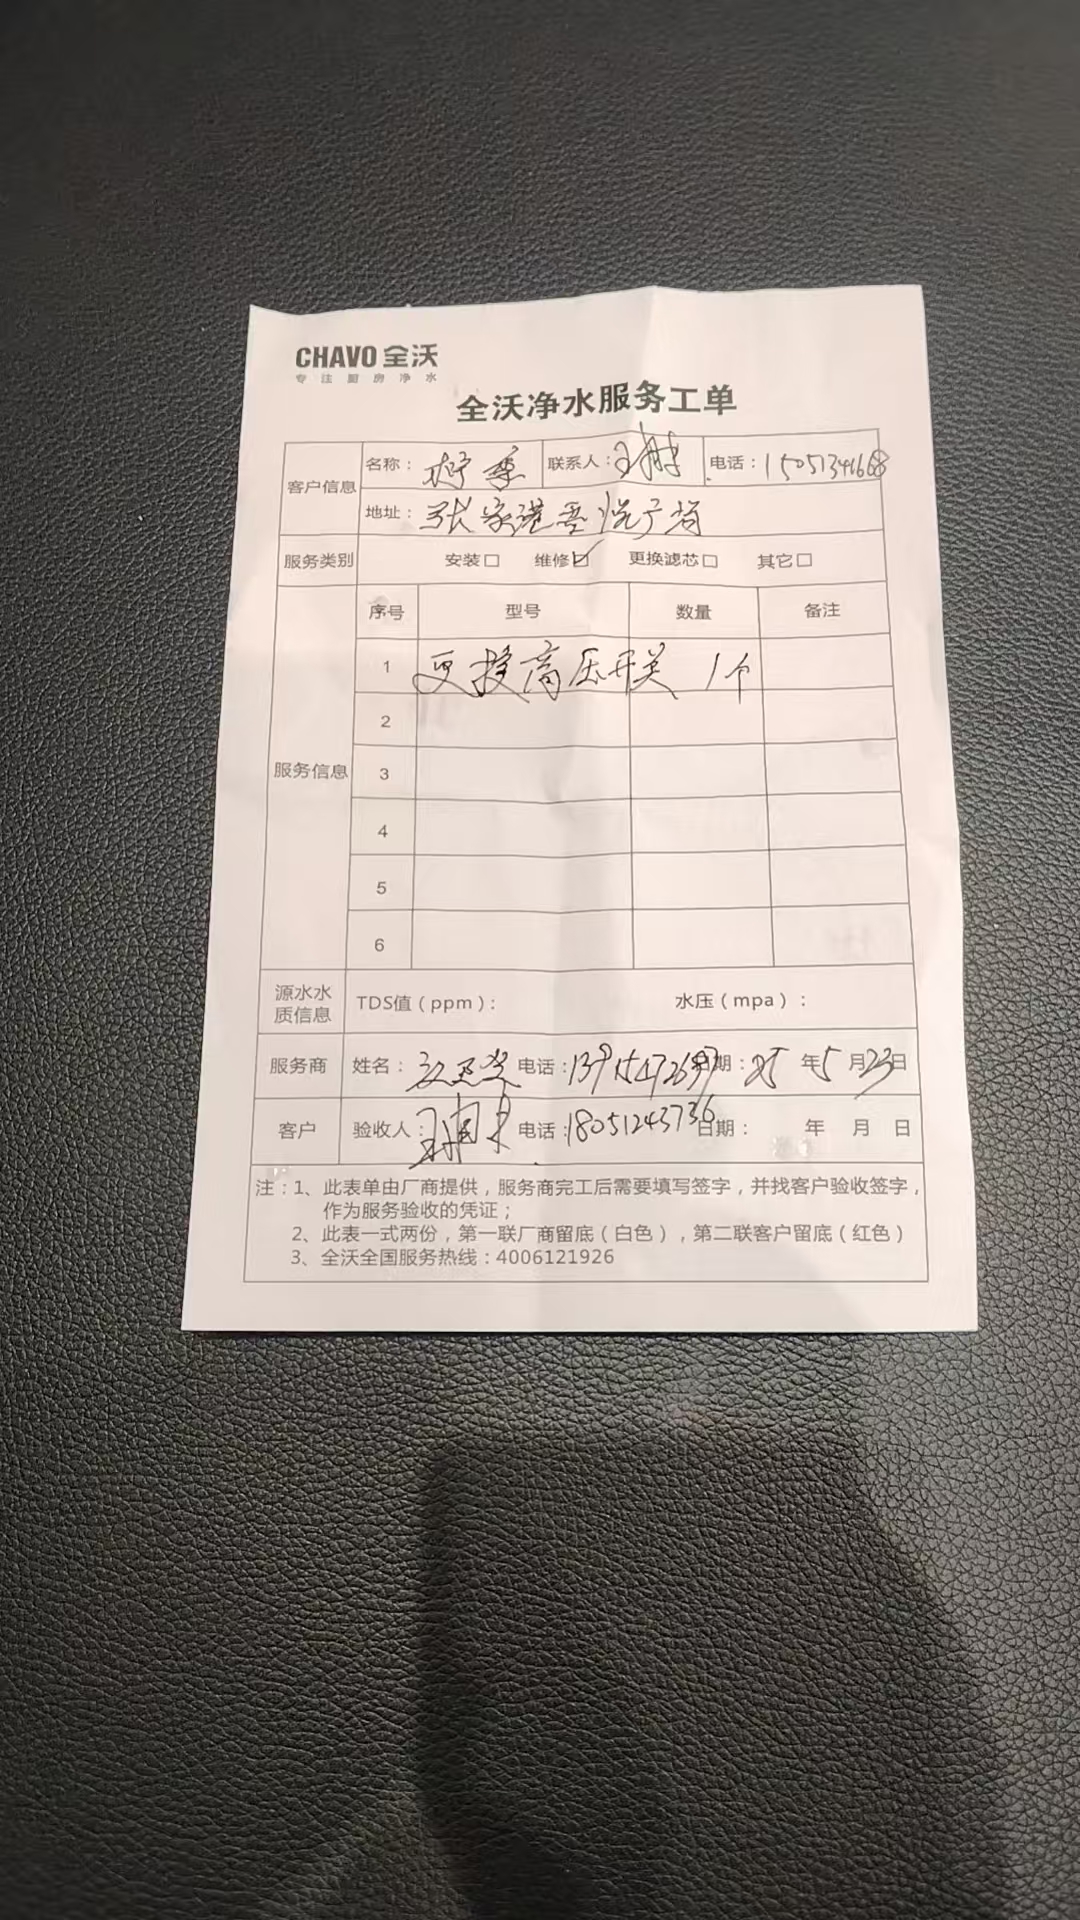 CHAVO 全沃
专注厨房净水
全沃净水服务工单
客户信息 名称: 联系人: 王 电话: 15051341668
地址: 张家港吾悦广场
服务类别 安装□ 维修☑ 更换滤芯□ 其它□
服务信息 序号 型号 数量 备注
1 更换高压开关 1个
2
3
4
5
6
源水水质信息 TDS值(ppm): 水压(mpa):
服务商 姓名: 电话: 日期: 25年5月23日
客户 验收人: 王 电话: 18051243736 日期: 年 月 日
注:1、此表单由厂商提供,服务商完工后需要填写签字,并找客户验收签字,
作为服务验收的凭证;
2、此表一式两份,第一联厂商留底(白色),第二联客户留底(红色)
3、全沃全国服务热线:4006121926